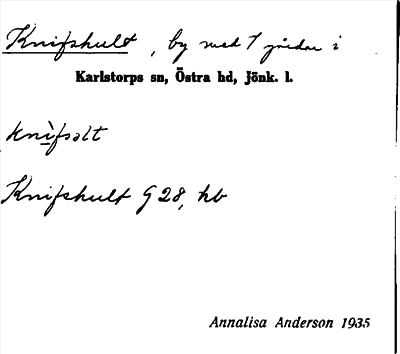 Knifshult, by med 7 gårdar i
Karlstorps sn, Östra hd, Jönk. l.
knìfsalt
Knifshult G 28, kb
Annalisa Anderson 1935